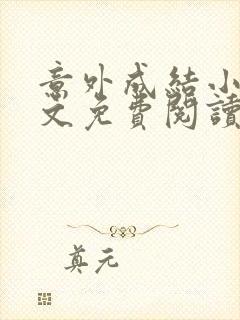 意外成結小
文免費閱讀
真元